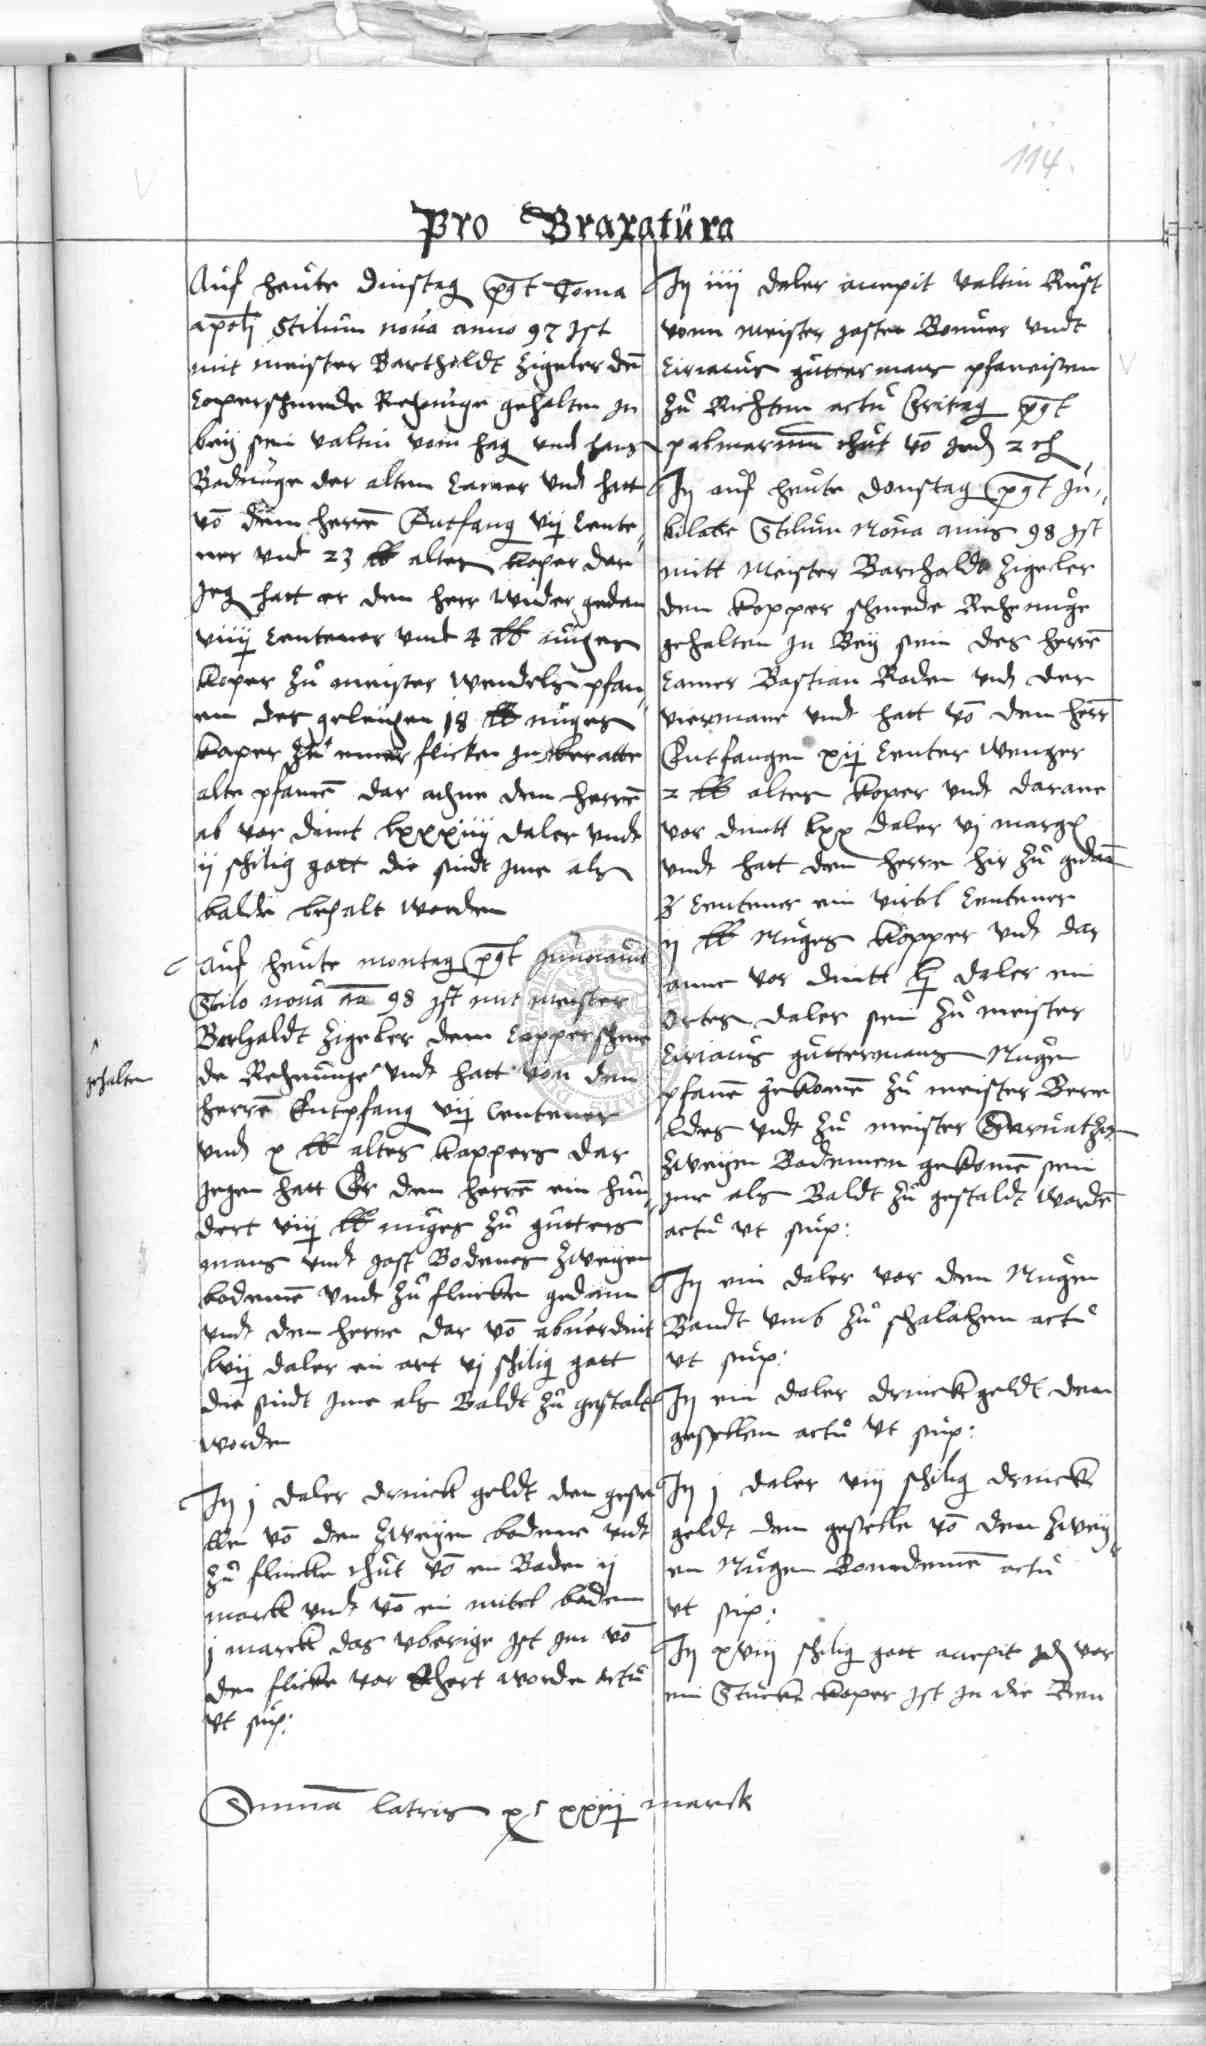 114.
Pro Braxatura
Auf heute Dinstag post Toma
apostoli Stilum nova anno 97 Ist
mit meister Bartholdt Zigeler den
Coperschmede Rechnunge gehalten in
bey sein Valtin vom Hag und Hans
Bodunge der alten Camer und hatt
vo den herren Entfang vij Cente
ner und 23 lb altes koper dar
jeg hatt er den herr wider gedan
viiij Centener und 4 lb nuges
koper zu meister Wendels pfan
en des geleigen 18 lb nuges
koper zu einer flicken in
alte pfannen dar ahne den herren
ab vor dint lxxxiiij daler undt
ij schilig gott die sindt Ime als
balde bezalt worden
Auf heute montag post Invocavit
Stilo nova ao 98 Ist mit meister
Bartholdt Zigeler dem Copperschme
de Rechnunge undt hatt von den
herren Entpfang vij Centener
und x lb altes koppers dar
jegen hatt Er den herren ein hun
dert viij lb nuges zu Gutters
mans undt Jost Bodeners zweyen
bodemen undt zu flicken gedann
undt den herre dar vo abverdint
lvij daler ein ort vj schilig gott
die sindt Ime als Baldt zu gestalt
worden
It j daler drinck geldt den gese
llen vo den zweyen bodene undt
zu flicken thut vo ein Boden ij
marck undt vo ein mitel boden
j marck das uberige ist Im vo
den flicke vor Ehert worde actu
ut sup:
gehalten
It iiij daler accepit Valtin Rust
vonn meister Joster Bonner undt
Ciriacus Guttermans pfaneisen
zu Richten actu Fritag post
palmarum thut vo jed 2 d
It auf heute Donstag post Ju
bilatte Stilum Nova anni 98 Ist
mitt Meister Bartholdt Zigeler
den kopper schmede Rechnuge
gehalten in Bey sein des herren
Camer Bastian Roden und der
viermane undt hatt vo den herr
Entfangen xij Center weniger
2 lb altes koper undt darane
vor dintt lxx daler vj marg
undt hatt den herre hir zu gedan
3 Centener ein virtel Centener
ij lb Nuges kopper undt dar
anne vor dintt lj daler ein
Ortes daler sein zu meister
Ciriacus Guttermans Nugen
pfanen gekomen zu meister
undt zu meister
zweyen Bodemen gekomen sein
Ime als Baldt zu gestaldt worden
actu ut sup:
It ein daler vor den Nugen
Bandt umb zu schalahen actu
ut sup:
It ein daler drinckgeldt den
gesellen actu ut sup:
It j daler viij schilig drinck
geldt den geselle vo den zwey
en Nugen Bonedemen actu
ut sup:
It xviij schilig gott accepit Id vor
ein Stucke koper ist in die Ren
Summa latris xc xxiiij marck